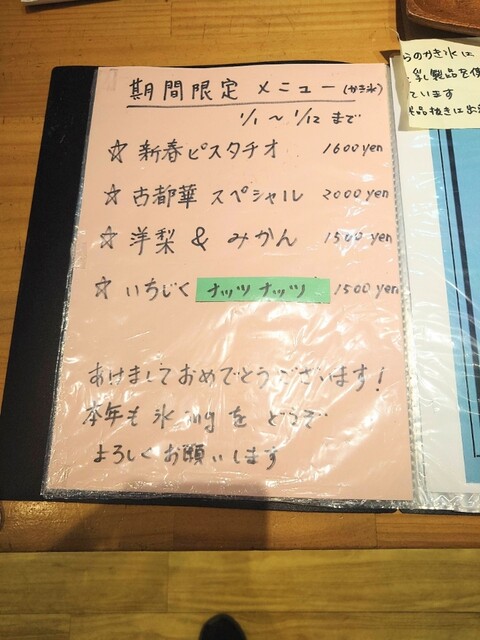 期間限定 メニュー(かき氷)
1/1 ~ 1/12 まで
☆ 新春ピスタチオ 1600yen
☆ 古都華 スペシャル 2000yen
☆ 洋梨 & みかん 1500yen
☆ いちじく ナッツナッツ 1500yen
あけましておめでとうございます!
本年も 氷ing を どうぞ
よろしくお願いします
らのかき氷に
乳製品を使
ています